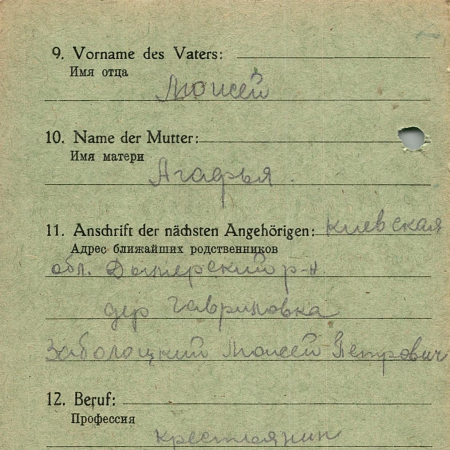 9. Vorname des Vaters:
Имя отца
Моисей
10. Name der Mutter:
Имя матери
Агафья.
11. Anschrift der nächsten Angehörigen: Киевская
Адрес ближайших родственников
обл. Дымерский р-н
дер Гавриловка
Заболоцкий Моисей Петрович
12. Beruf:
Профессия
крестьянин